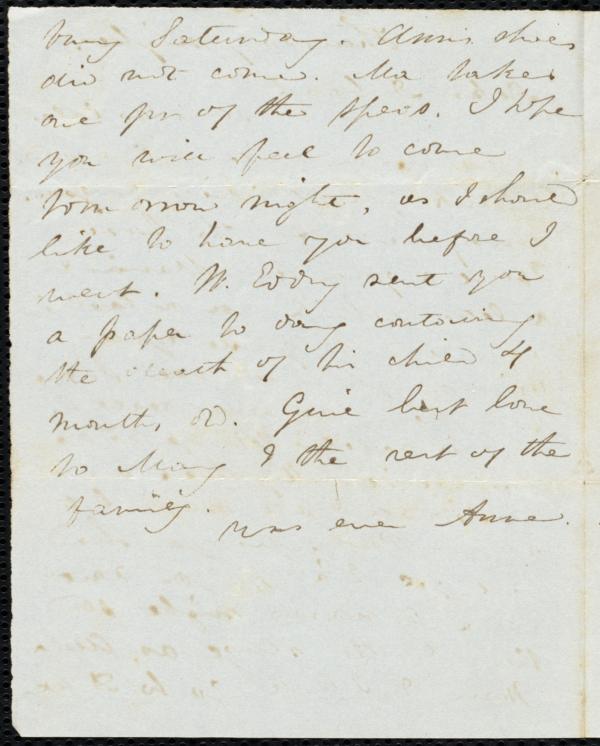 bury Saturday. Ann's shoes
did not come. Ma takes
one pr of the specs. I hope
you will feel to come
tomorrow night, as I should
like to have you before I
went. W. Eddy sent you
a paper to day containing
the death of his child 4
months old. Give best love
to Mary & the rest of the
family.
yrs ever Anne.